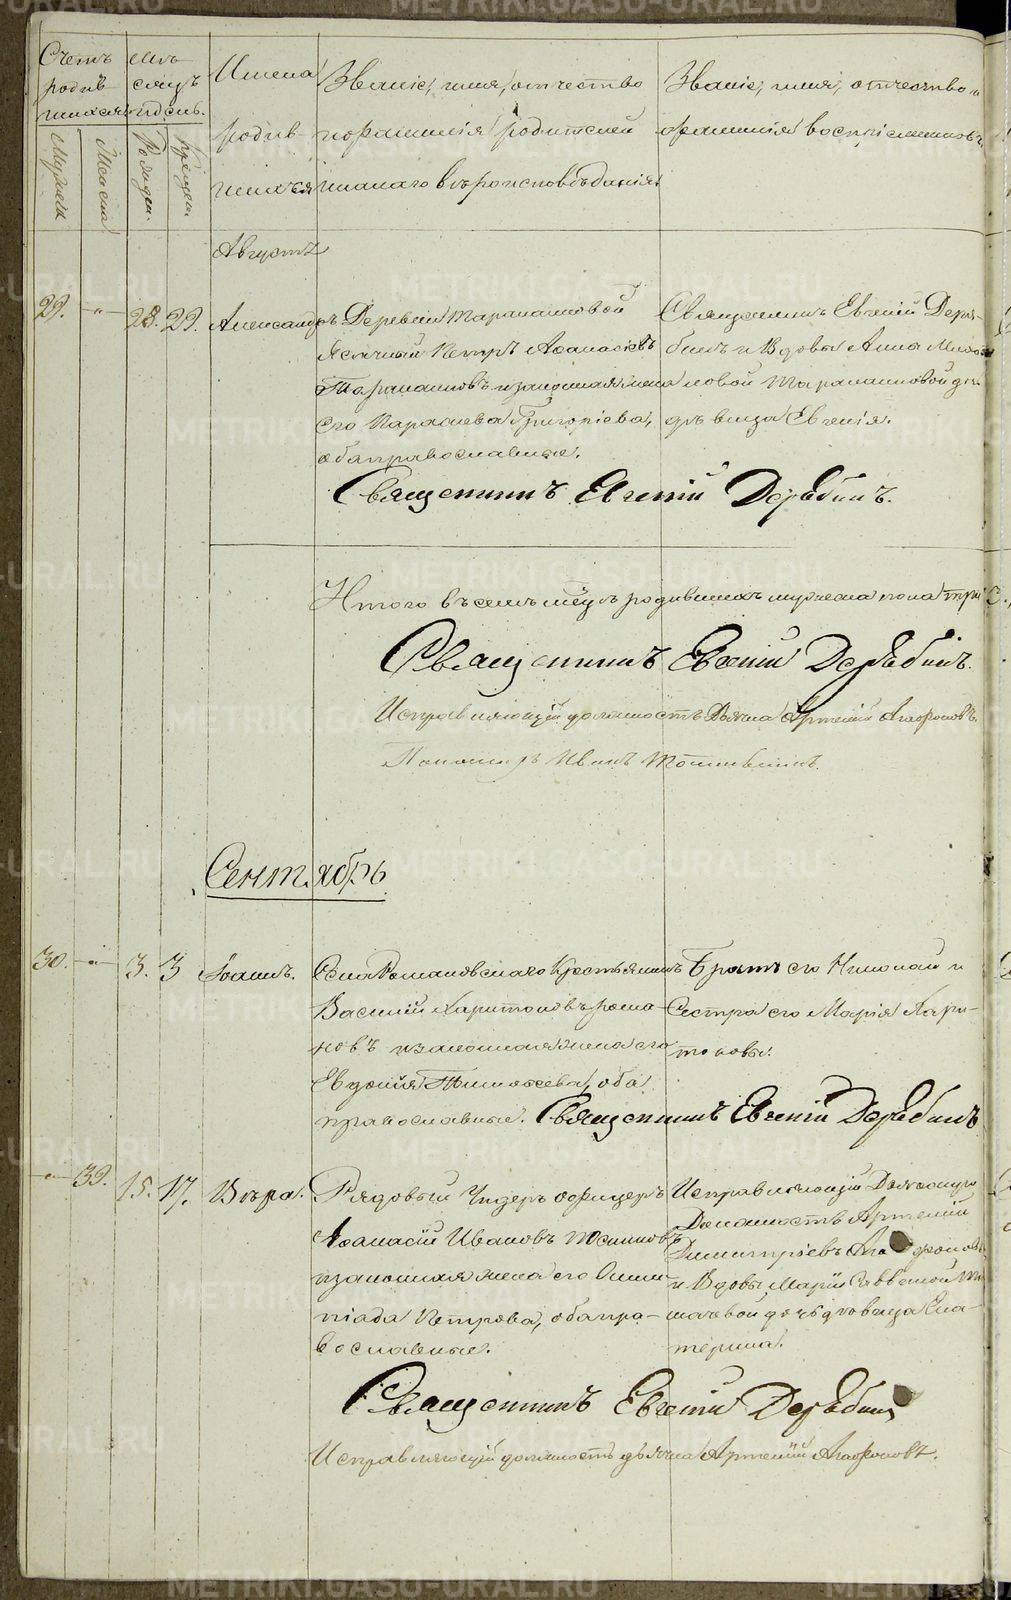 Счетъ родив-шихся
Мѣсяцъ и день.
Мужеска
Женска
Рожден.
Крещен.
Имена родив-шихся
Званіе, имя, отчество
и фамилія родителей
и какаго вѣроисповѣданія
Званіе, имя, отчество и
фамилія воспріемниковъ
Августъ
29. - " - 28. 29. Александръ
Деревни Таракановой
Ясачный Петръ Аѳанасіевъ
Таракановъ и законная жена
его Параскева Григоріева,
оба православные.
Священникъ Евгеній Деря-
бинъ и Вдовы Анны
Таракановой до-
чь дѣвица Евгенія.
Священникъ Евгеній Дерябинъ.
Итого въ семъ мѣсяцѣ родившихъ мужеска пола три 3.
Священникъ Евгеній Дерябинъ.
Исправляющій должность Дьячка Артемій Агафоновъ.
Пономарь Иванъ
Сентябрь
30. - " - 3. 3 Іоаннъ.
Села Романовскаго Крестьянинъ
Василій Харитоновъ Рома-
новъ и законная жена его
Евдокія Тимоѳеева, оба
православные.
Братъ его Николай и
Сестра его Марія Хари-
тоновы.
Священникъ Евгеній Дерябинъ
- " - 39. 15. 17. Вѣра.
Рядовый Ундеръ офицеръ
Аѳанасій Ивановъ
и законная жена его Олим-
піада Петрова, оба пра-
вославные.
Исправляющій Дьяческую
Должность Артемій
Димитріевъ Агафоновъ
и Вдовы Маріи
дочь дѣвица Ека-
терина.
Священникъ Евгеній Дерябинъ
Исправляющій должность дьячка Артемій Агафоновъ.
METRIKI.GASO-URAL.RU